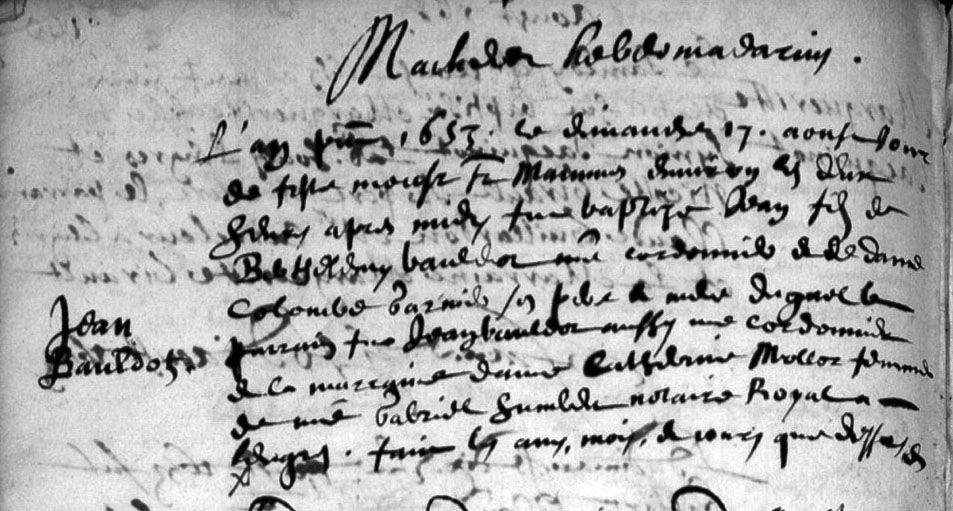 Machelen hebdomadarius.
L'an p͞nt 1653. le dimanche 17. aoust jour
de feste monsr St Mammes environ les deux
heures apres midy fut baptizé Jean filz de
Barthelemy Bauldot me cordonnier et de dame
Colombe Garnier ses pere et mere duquel le
parrain fut Jean Bauldot aussy me cordonnier
et la marraine dame Catherine Mollot femme
Jean
Bauldot.
de me Gabriel Humblot notaire Royal a
Lengres. faict les ans, mois, et jours que dessus